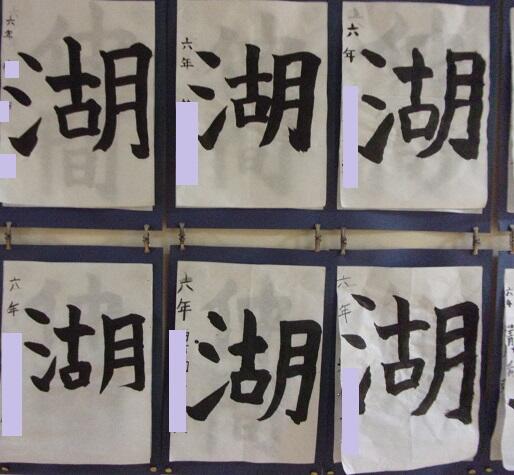 六年
湖
六年
湖
六年
湖
六年
湖
六年
湖
六年
湖
六年